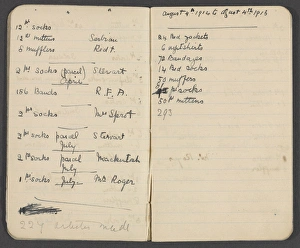 12 pr socks
12 pr mittens Serbian
5 mufflers Red +.
2 prs socks (parcel) Stewart
April
154 Bands R.F.A.
2 prs socks Mrs Sprot
2 prs socks parcel Stewart
July
2 prs socks parcel Mackintosh
July
1 pr socks July. Mrs Roger
224 articles made
August 4th 1914 to August 4th 1915
24 Bed jackets
6 nightshirts
72 Bandages
14 Bed socks
50 mufflers
socks
50 pr mittens
293